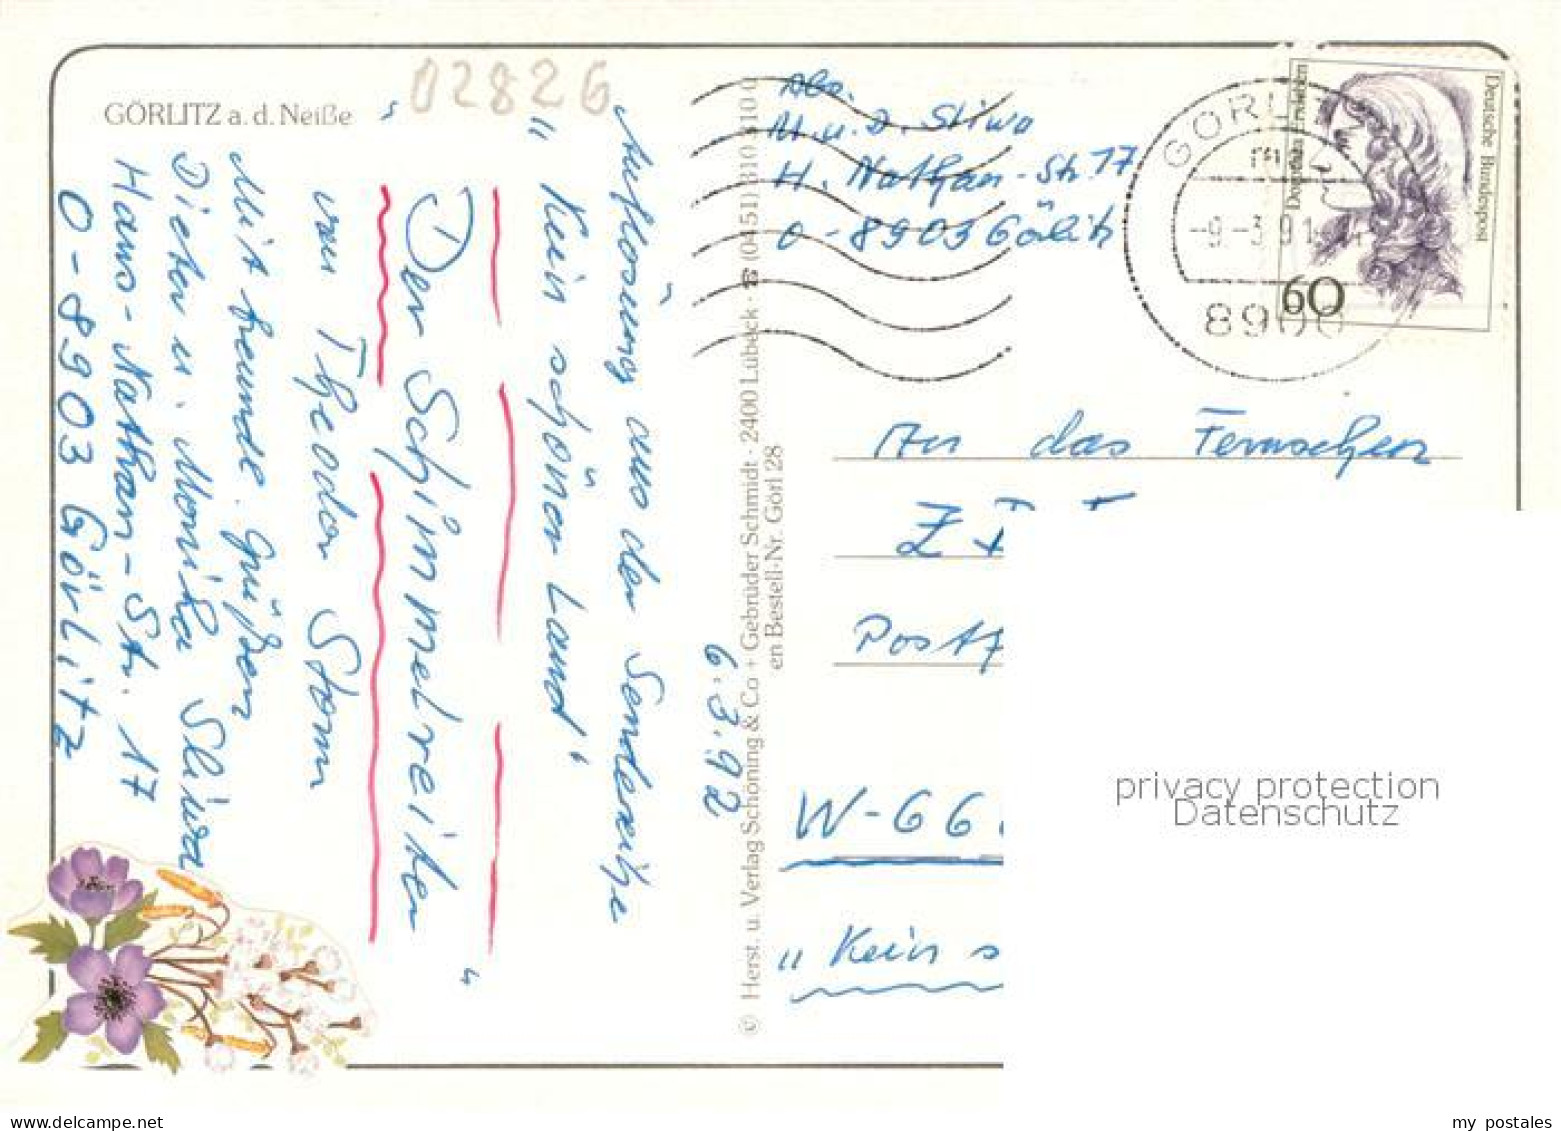 GÖRLITZ a. d. Neiße
02826
Auflösung aus der Sendereihe
"Kein schöner Land"
"Der Schimmelreiter"
von Theodor Storm
Mit freundl. Grüßen
Dieter u. Monika Sliwa
Hans-Nathan-Str. 17
0-8903 Görlitz
6.3.92
© Herst. u. Verlag Schöning & Co + Gebrüder Schmidt · 2400 Lübeck · ☎ (0451) 310 310
en Bestell-Nr. Görl 28
Abs.
M. u. D. Sliwa
H. Nathan-Str. 17
0-8903 Görlitz
GÖRLI
-9.-3.
8900
Deutsche Bundespost
Dorothea Erxleben
60
An das Fernsehen
ZDF
Postf
W-66
"Kein s
privacy protection
Datenschutz
my postales